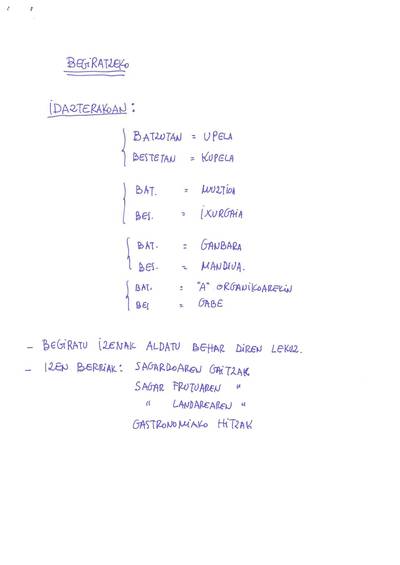 BEGIRATZEKO
IDAZTERAKOAN:
BATZUTAN = UPELA
BESTETAN = KUPELA
BAT. = MUZTIOA
BES. = IXURGAIA
BAT. = GANBARA
BES. = MANDIUA.
BAT. = "A" ORGANIKOAREKIN
BES = GABE
- BEGIRATU IZENAK ALDATU BEHAR DIREN LEKUZ.
- IZEN BERRIAK: SAGARDOAREN GAITZAK
SAGAR FRUTUAREN "
" LANDAREAREN "
GASTRONOMIAKO HITZAK